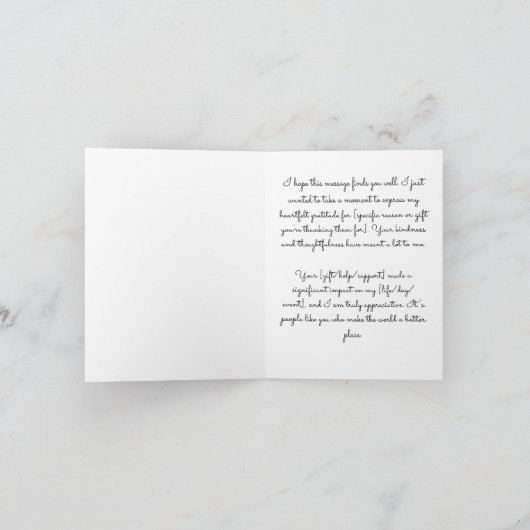 I hope this message finds you well. I just
wanted to take a moment to express my
heartfelt gratitude for [specific reason or gift
you're thanking them for]. Your kindness
and thoughtfulness have meant a lot to me.
Your [gift/help/support] made a
significant impact on my [life/day/
event], and I am truly appreciative. It's
people like you who make the world a better
place.